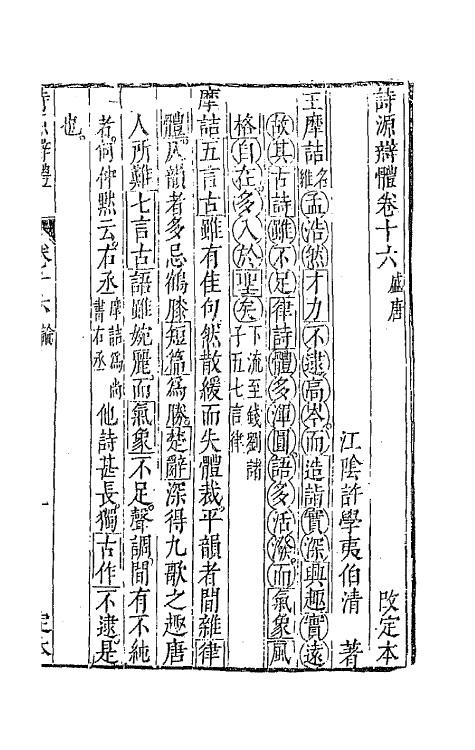 詩源辯體卷十六 盛唐 改定本
江陰許學夷伯清 著
王摩詰名維孟浩然才力不逮高岑而造詣實深興趣實遠
故其古詩雖不足律詩體多渾圓語多活潑而氣象風
格自在多入於聖矣下流至錢劉諸子五七言律
摩詰五言古雖有佳句然散緩而失體裁平韻者間雜律
體仄韻者多忌鶴膝短篇爲勝楚辭深得九歌之趣唐
人所難七言古語雖婉麗而氣象不足聲調間有不純
者何仲默云右丞摩詰爲尚書右丞他詩甚長獨古作不逮是
也
卷十六 論 一 定本